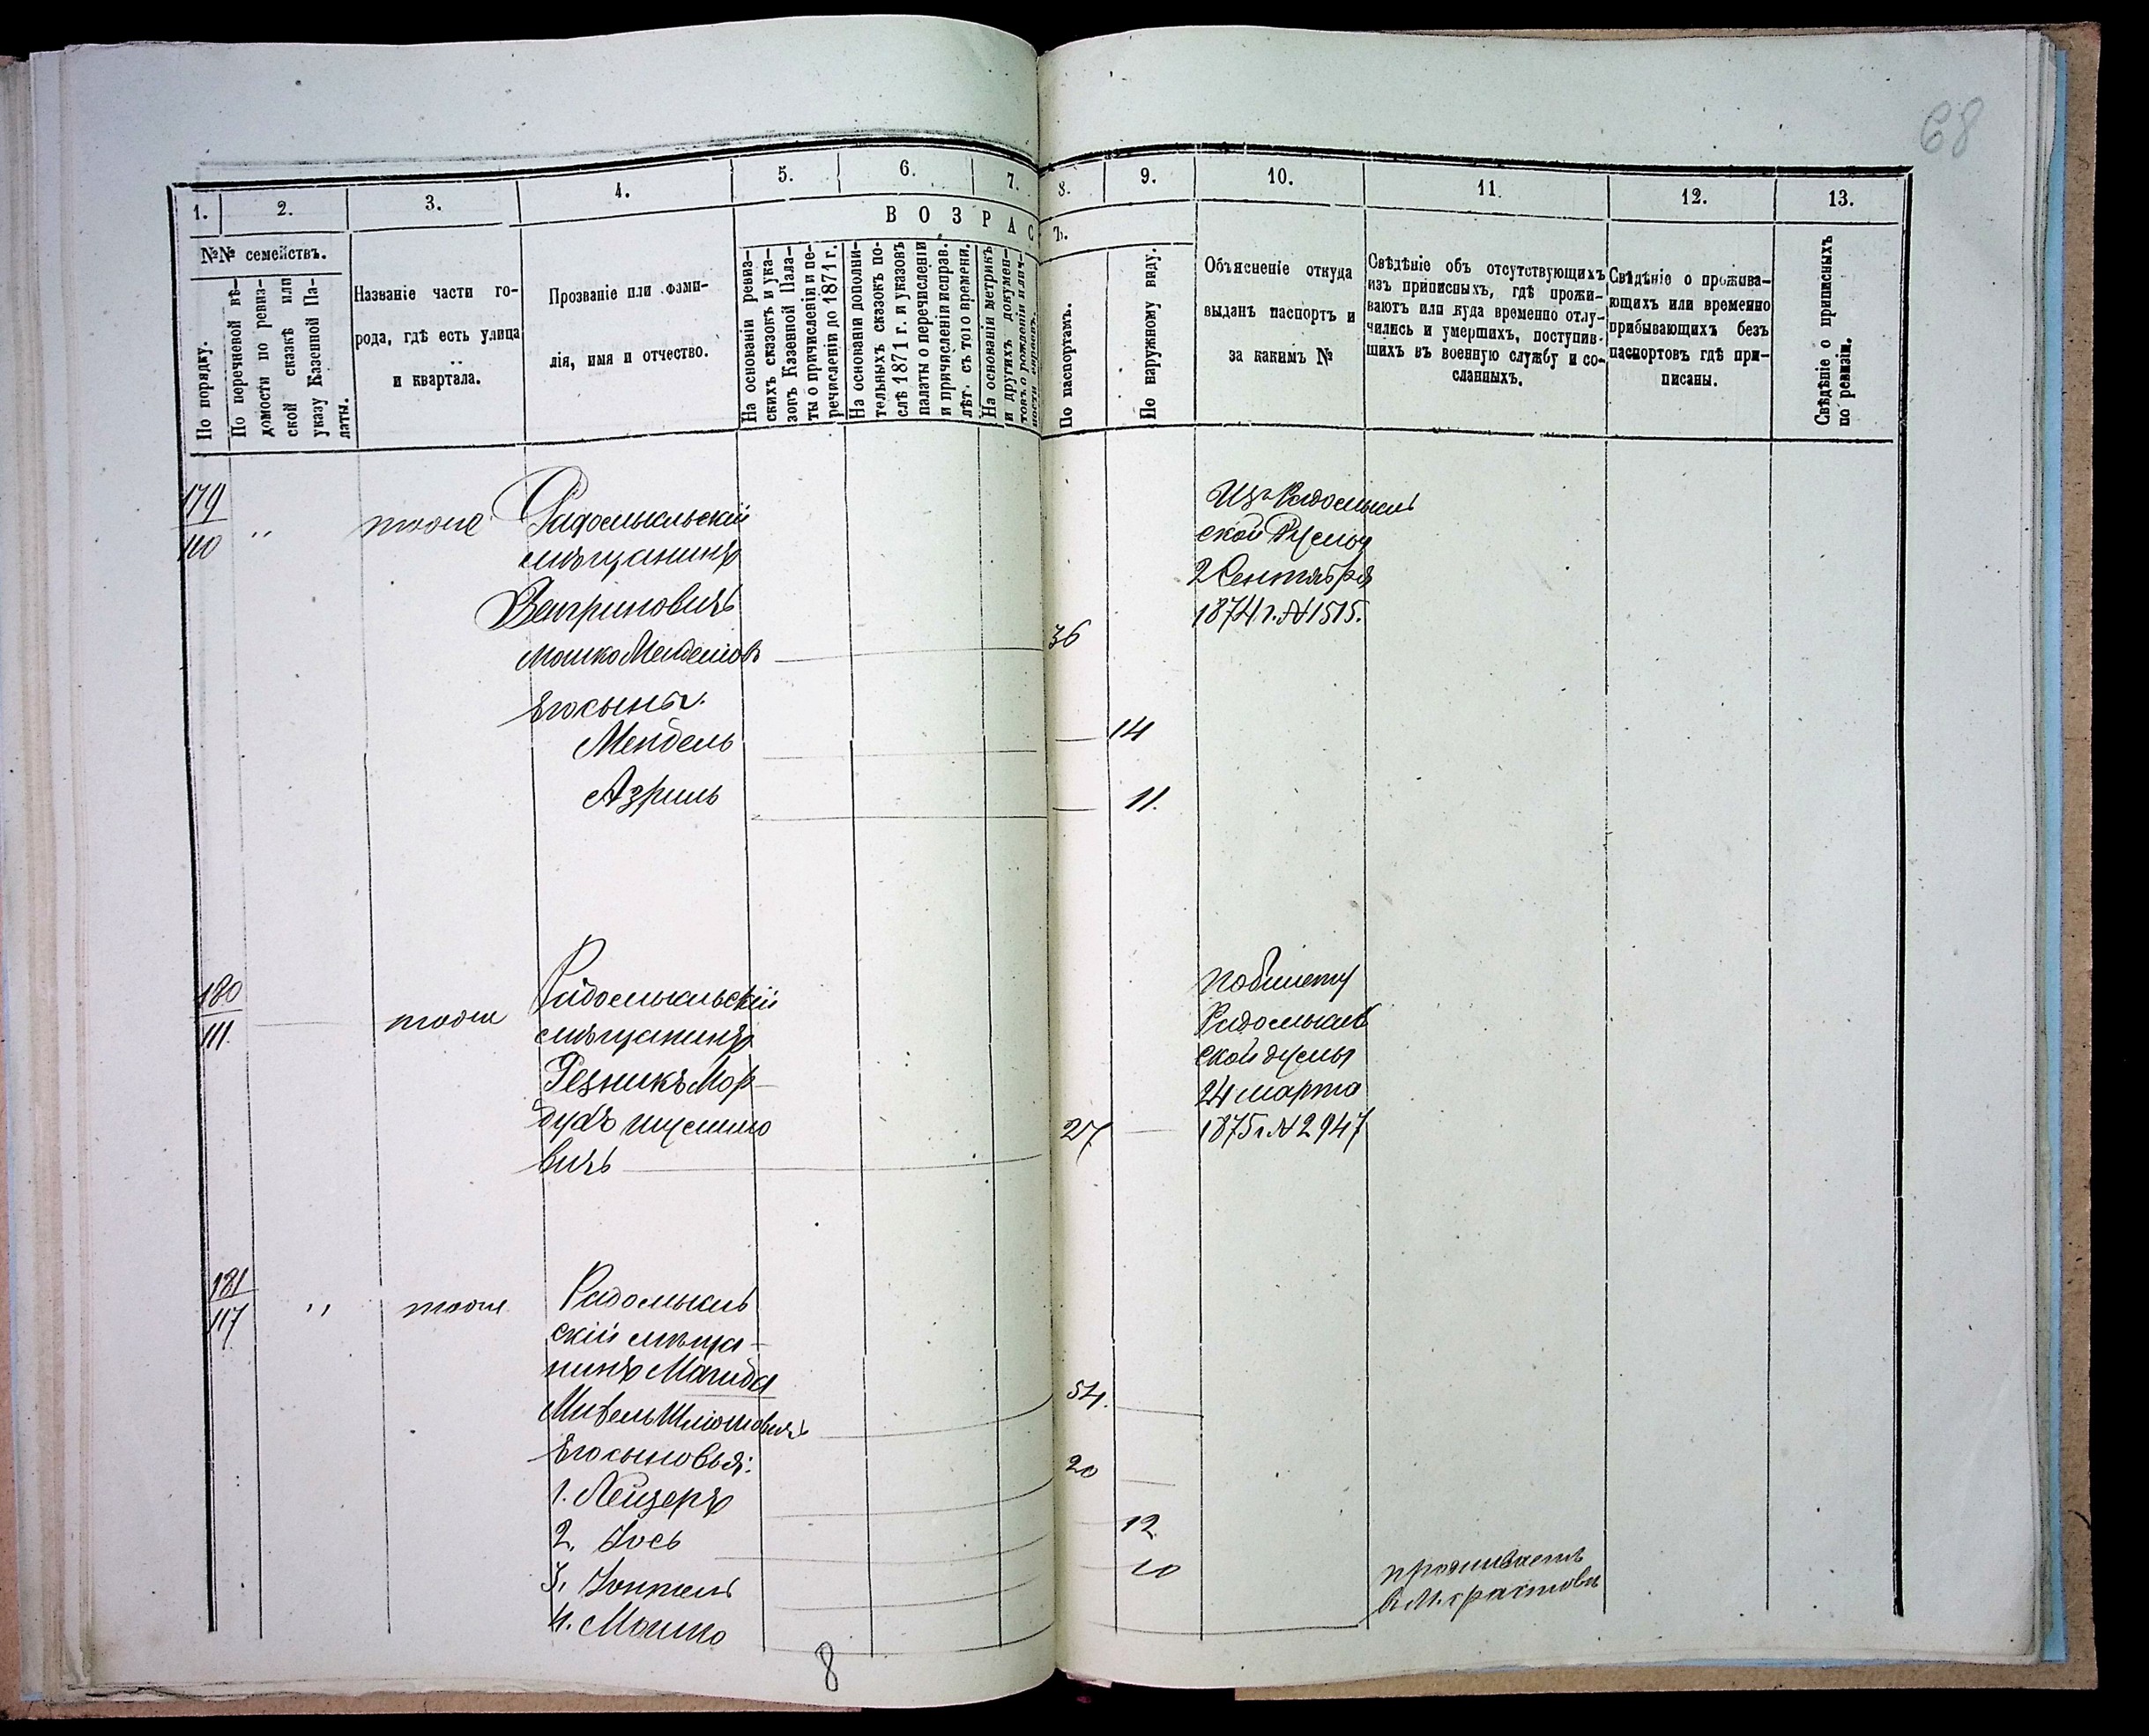 68
1. 2. 3. 4. 5. 6. 7. 8. 9. 10. 11. 12. 13.
№№ семействъ.
ВОЗРАС
Ъ.
По порядку.
По перечневой вѣ-
домости по ревиз-
ской сказкѣ или
указу Казенной Па-
латы.
Названіе части го-
рода, гдѣ есть улица
и квартала.
Прозваніе или фами-
лія, имя и отчество.
На основаніи ревиз-
скихъ сказокъ и ука-
зовъ Казенной Пала-
ты о причисленіи и пе-
речисленіи до 1871 г.
На основаніи дополни-
тельныхъ сказокъ по-
слѣ 1871 г. и указовъ
палаты о перечисленіи
и причисленіи исправ.
лѣт. съ того времени.
На основаніи метрикъ
и другихъ докумен-
товъ о рожденіи и лич-
ности справ.
По паспортамъ.
По наружному виду.
Объясненіе откуда
выданъ паспортъ и
за какимъ №
Свѣдѣніе объ отсутствующихъ
изъ приписныхъ, гдѣ прожи-
ваютъ или куда временно отлу-
чились и умершихъ, поступив-
шихъ въ военную службу и со-
сланныхъ.
Свѣдѣніе о прожива-
ющихъ или временно
прибывающихъ безъ
паспортовъ гдѣ при-
писаны.
Свѣдѣніе о приписныхъ
по ревизіи.
179
110
"
тоже
Радомысльскій
мѣщанинъ
Венгриновичъ
Мошко Менделіовъ
36
Его сыны.
Мендель
14
Азриль
11.
Изъ Радомысль
ской Думы
2 Сентября
1874 г. №1515.
180
111.
тоже
Радомысльскій
мѣщанинъ
Резникъ Мор-
духъ Шулимо
вичъ
27
По билету
Радомысль
ской думы
24 марта
1875 г. №2947
181
117
"
тоже
Радомысль
скій мѣща-
нинъ Магида
54.
Его сыновья:
20
1. Лейзеръ
2. Іось
12
3. Іонтель
10
4. Мошко
проживаетъ
8